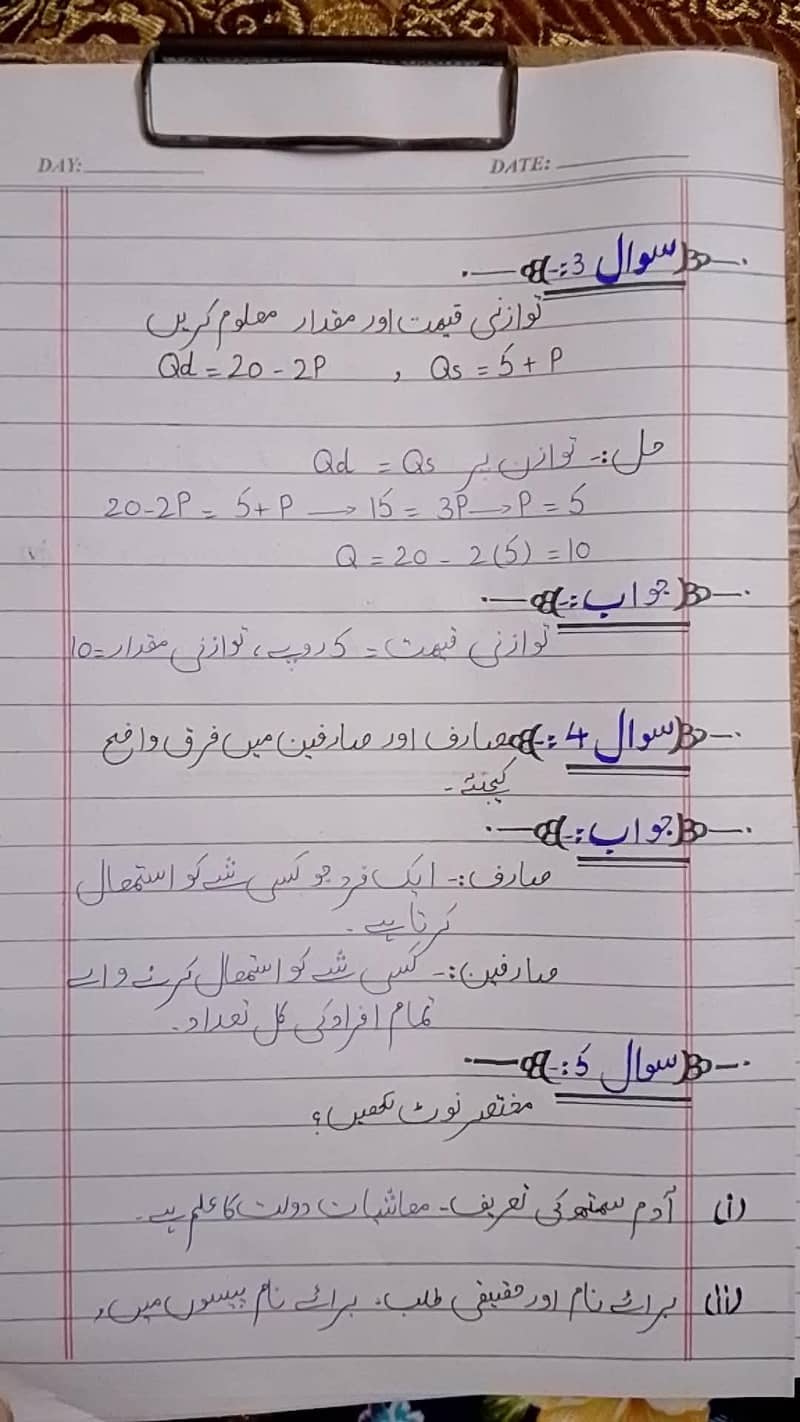 DAY: DATE:
سوال 3 :-
توازنی قیمت اور مقدار معلوم کریں
Qd = 20 - 2P , Qs = 5 + P
حل :- توازن پر Qd = Qs
20-2P = 5+P → 15 = 3P → P = 5
Q = 20 - 2(5) = 10
جواب :-
توازنی قیمت = 5 روپے، توازنی مقدار = 10
سوال 4 :- صارف اور صارفین میں فرق واضح
کیجئے -
جواب :-
صارف :- ایک فرد جو کسی شے کو استعمال
کرتا ہے -
صارفین :- کسی شے کو استعمال کرنے والے
تمام افراد کی کل تعداد -
سوال 5 :-
مختصر نوٹ لکھیں؟
(i) آدم سمتھ کی تعریف - معاشیات دولت کا علم ہے -
(ii) برائے نام اور حقیقی طلب، برائے نام پیسوں میں،